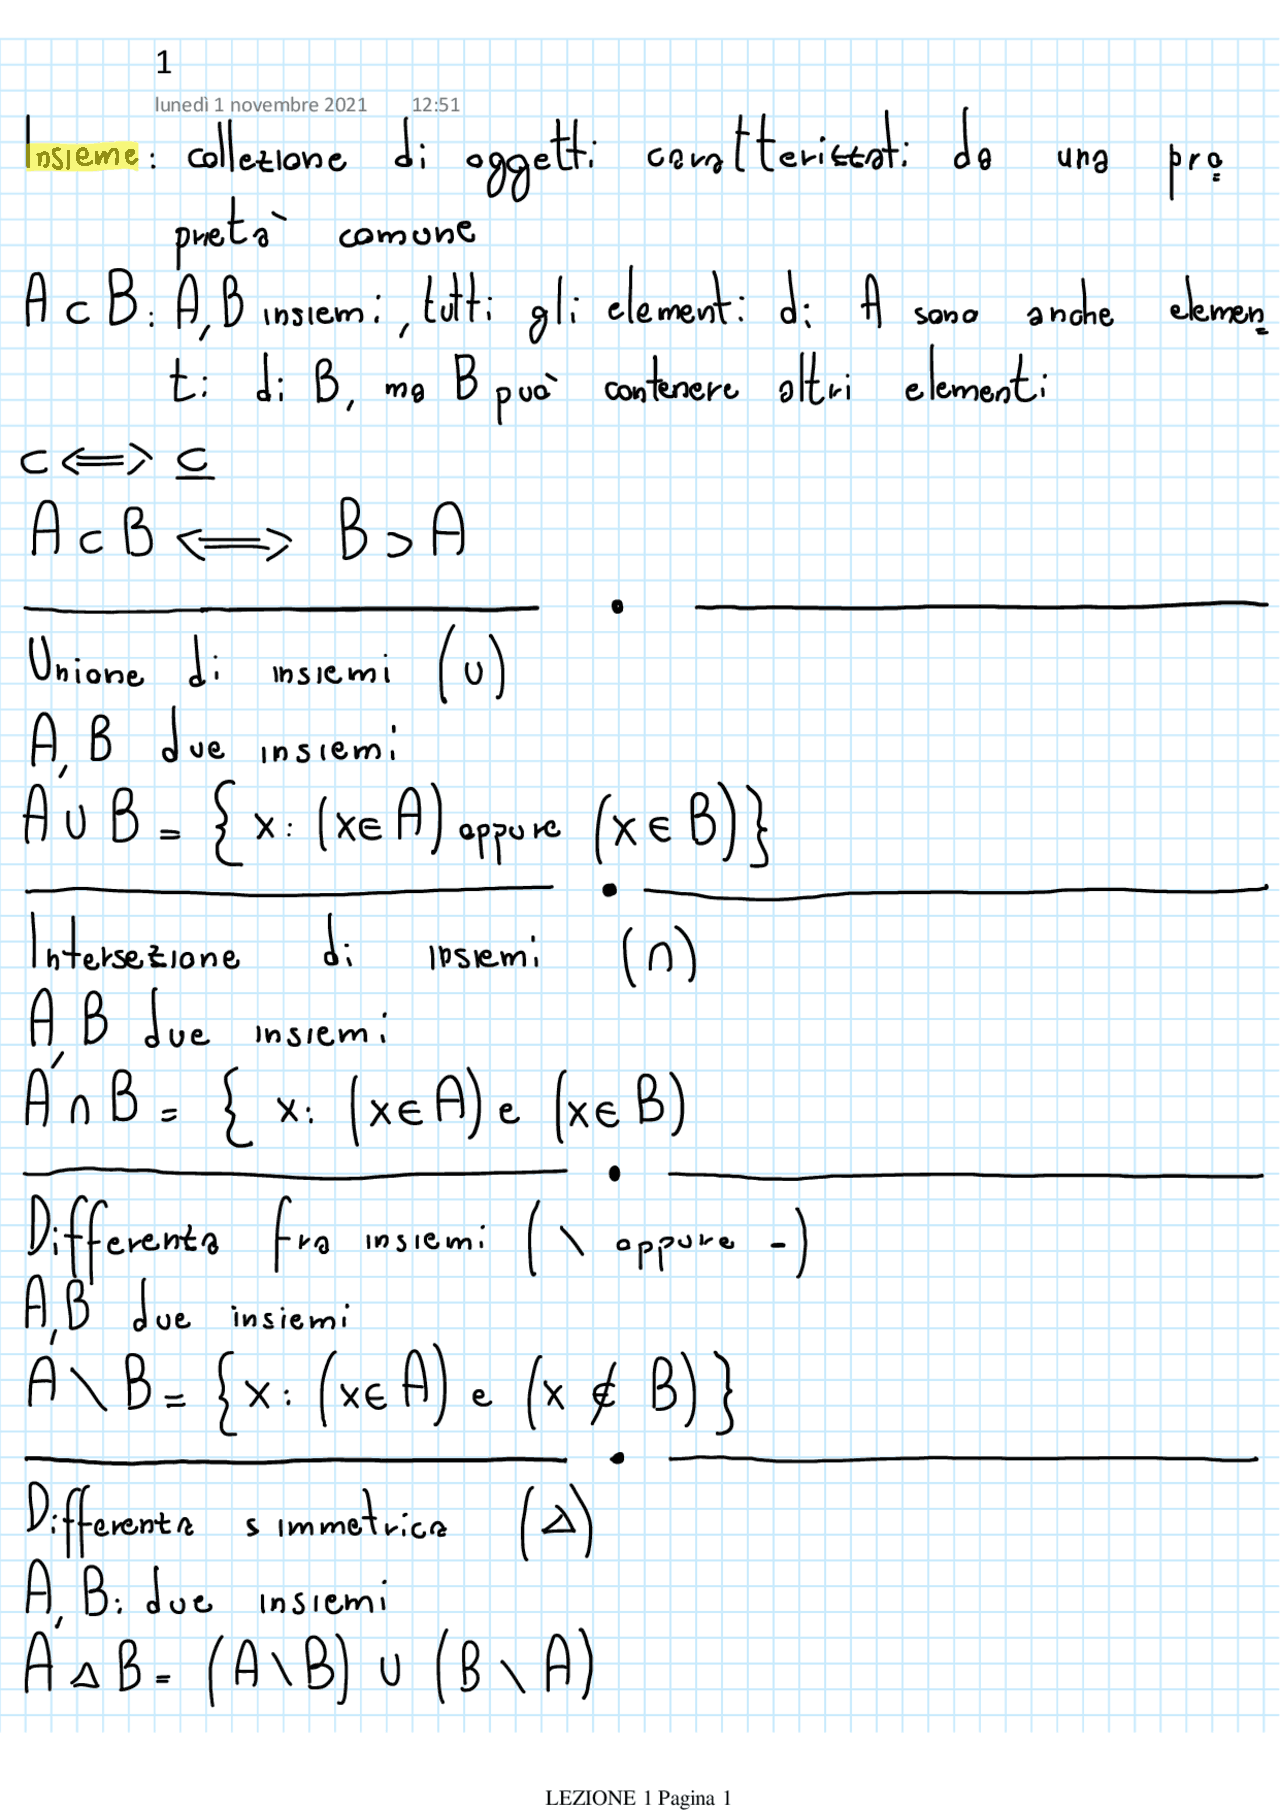 1
lunedì 1 novembre 2021 12:51
Insieme: collezione di oggetti caratterizzati da una pro
prietà comune
A ⊂ B: A, B insiemi, tutti gli elementi di A sono anche elemen
ti di B, ma B può contenere altri elementi
⊂ ⟺ ⊆
A ⊂ B ⟺ B ⊃ A
Unione di insiemi (∪)
A, B due insiemi
A ∪ B = { x: (x∈A) oppure (x∈B)}
Intersezione di insiemi (∩)
A, B due insiemi
A ∩ B = { x: (x∈A) e (x∈B)
Differenza fra insiemi (\ oppure -)
A, B due insiemi
A \ B = {x: (x∈A) e (x∉B)}
Differenza simmetrica (Δ)
A, B: due insiemi
A Δ B = (A\B) ∪ (B\A)
LEZIONE 1 Pagina 1